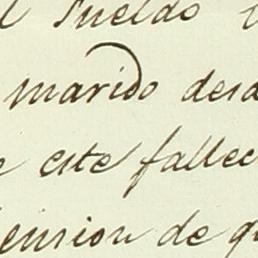 l sueldo
marido desd
e este fallec
pension de q